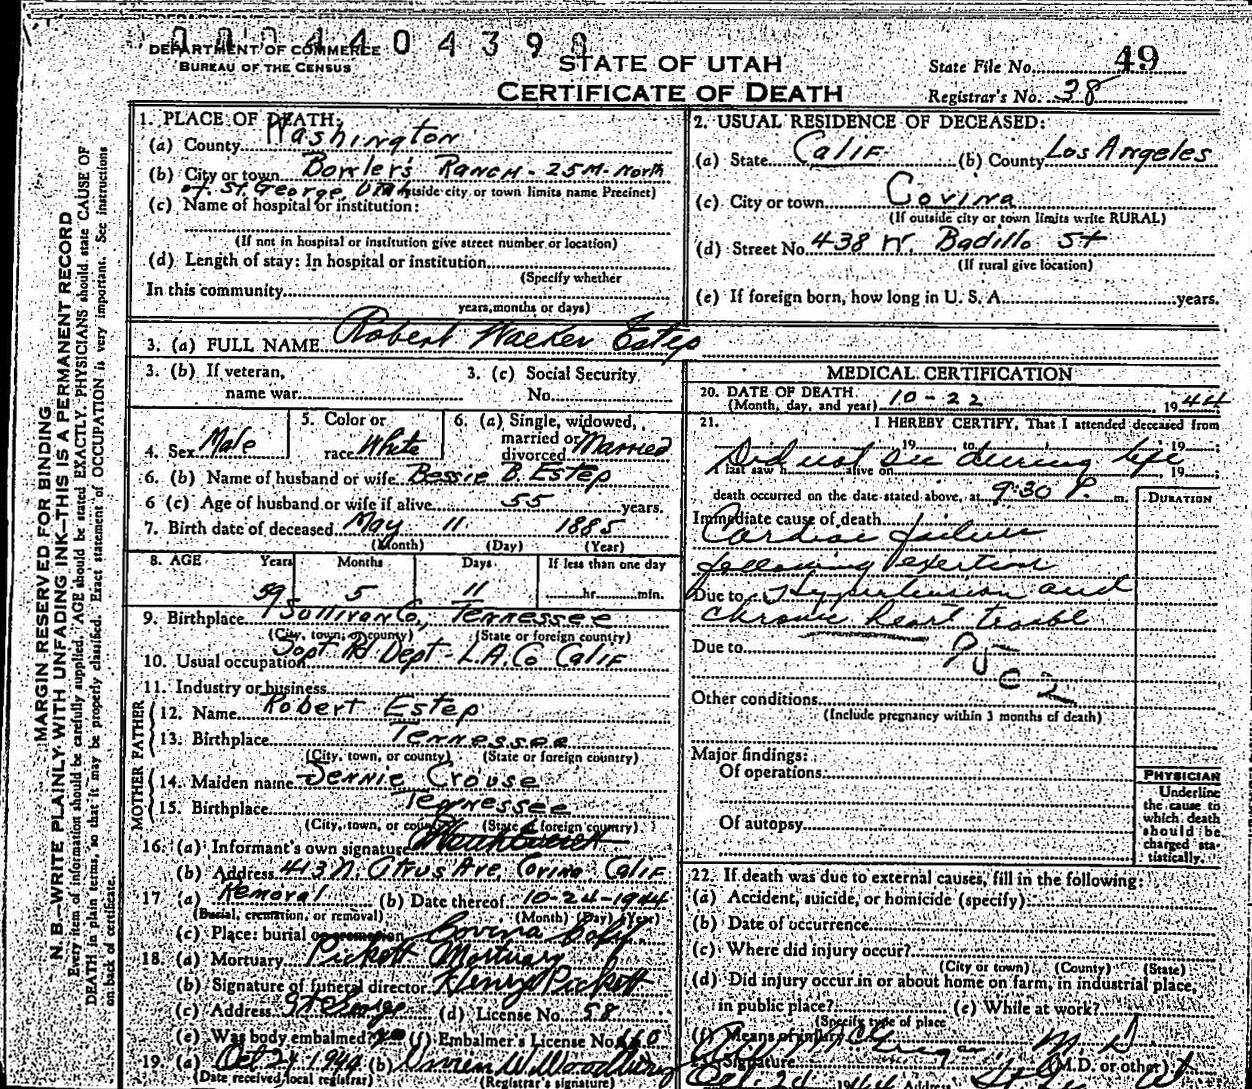 0004404390
DEPARTMENT OF COMMERCE
BUREAU OF THE CENSUS
STATE OF UTAH
CERTIFICATE OF DEATH
State File No. 49
Registrar's No. 38
MARGIN RESERVED FOR BINDING
N. B.—WRITE PLAINLY WITH UNFADING INK—THIS IS A PERMANENT RECORD
Every item of information should be carefully supplied. AGE should be stated EXACTLY. PHYSICIANS should state CAUSE OF
DEATH in plain terms, so that it may be properly classified. Exact statement of OCCUPATION is very important. See instructions
on back of certificate.
1. PLACE OF DEATH:
(a) County Washington
(b) City or town Bowler's Ranch - 25 M- North
of St. George, Utah outside city or town limits name Precinct)
(c) Name of hospital or institution:
(If not in hospital or institution give street number or location)
(d) Length of stay: In hospital or institution
(Specify whether
In this community
years, months or days)
2. USUAL RESIDENCE OF DECEASED:
(a) State Calif (b) County Los Angeles
(c) City or town Covina
(If outside city or town limits write RURAL)
(d) Street No. 438 W. Badillo St
(If rural give location)
(e) If foreign born, how long in U. S. A. years.
3. (a) FULL NAME Robert Walker Estep
3. (b) If veteran,
name war
3. (c) Social Security
No.
4. Sex Male
5. Color or
race White
6. (a) Single, widowed,
married or
divorced Married
6. (b) Name of husband or wife Bessie B. Estep
6 (c) Age of husband or wife if alive 55 years.
7. Birth date of deceased May 11 1885
(Month) (Day) (Year)
8. AGE Years Months Days If less than one day
59 5 11 hr. min.
9. Birthplace Sullivan Co., Tennessee
(City, town, or county) (State or foreign country)
10. Usual occupation Supt Rd Dept - L.A. Co Calif
11. Industry or business
FATHER
12. Name Robert Estep
13. Birthplace Tennessee
(City, town, or county) (State or foreign country)
MOTHER
14. Maiden name Jennie Crouse
15. Birthplace Tennessee
(City, town, or county) (State or foreign country)
16. (a) Informant's own signature
(b) Address 413 N. Citrus Ave, Covina Calif
17 (a) Removal (b) Date thereof 10-24-1944
(Burial, cremation, or removal) (Month) (Day) (Year)
(c) Place: burial or cremation Covina Calif.
18. (a) Mortuary Pickett Mortuary
(b) Signature of funeral director Henry Pickett
(c) Address St George (d) License No. 58
(e) Was body embalmed? (f) Embalmer's License No.
19 (a) Oct 24 1944 (b)
(Date received local registrar) (Registrar's signature)
MEDICAL CERTIFICATION
20. DATE OF DEATH
(Month, day, and year) 10-22 1944
21. I HEREBY CERTIFY, That I attended deceased from
19 to 19
Did not see during life
I last saw h alive on 19
death occurred on the date stated above, at 9:30 P. m.
DURATION
Immediate cause of death
Cardiac failure
following exertion
Due to Hypertension and
chronic heart trouble
Due to
9502
Other conditions
(Include pregnancy within 3 months of death)
Major findings:
Of operations
Of autopsy
PHYSICIAN
Underline
the cause to
which death
should be
charged sta-
tistically.
22. If death was due to external causes, fill in the following:
(a) Accident, suicide, or homicide (specify)
(b) Date of occurrence
(c) Where did injury occur?
(City or town) (County) (State)
(d) Did injury occur in or about home on farm, in industrial place,
in public place? (e) While at work?
(Specify type of place
(f) Means of injury
Signature M. D. (M.D. or other)
Oct. 24 1944 Address